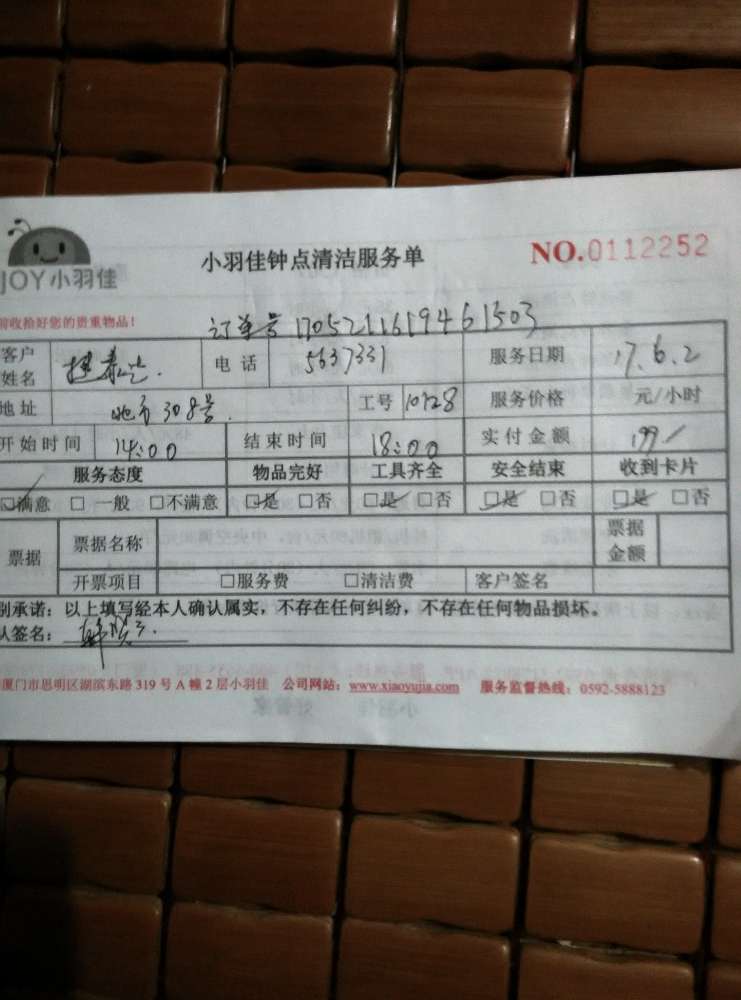 JOY小羽佳
小羽佳钟点清洁服务单
NO.0112252
前收拾好您的贵重物品!
订单号 1705211619461503
客户姓名 电话 5637331 服务日期 17.6.2
地址 308号. 工号 10728 服务价格 元/小时
开始时间 14:00 结束时间 18:00 实付金额 199
服务态度 物品完好 工具齐全 安全结束 收到卡片
□满意 □一般 □不满意 □是 □否 □是 □否 □是 □否 □是 □否
票据 票据名称 票据金额
开票项目 □服务费 □清洁费 客户签名
别承诺:以上填写经本人确认属实,不存在任何纠纷,不存在任何物品损坏。
认签名:
厦门市思明区湖滨东路 319 号 A 幢 2 层小羽佳 公司网站:www.xiaoyujia.com 服务监督热线:0592-5888123